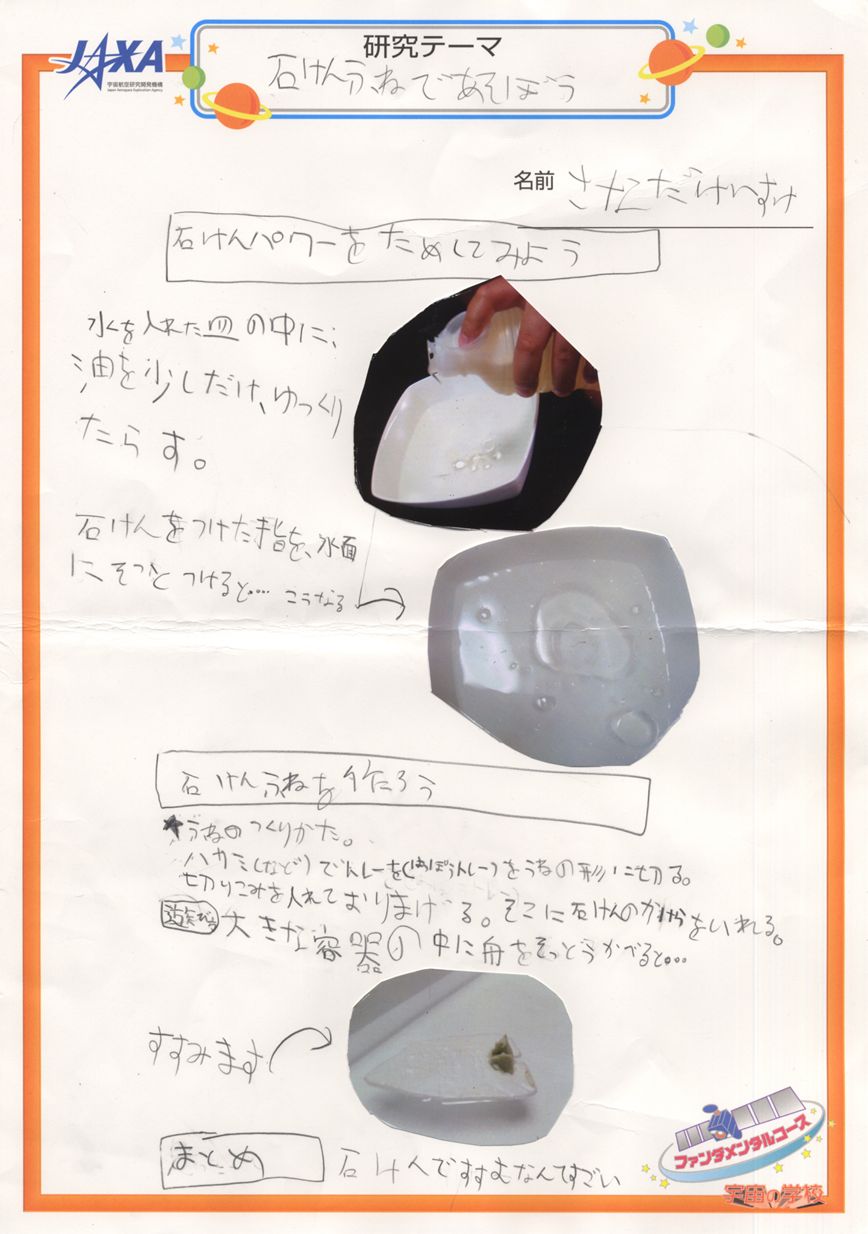 JAXA
宇宙航空研究開発機構
Japan Aerospace Exploration Agency
研究テーマ
石けんふねであそぼう
名前
石けんパワーをためしてみよう
水を入れた皿の中に、
油を少しだけ、ゆっくり
たらす。
石けんをつけた手指を、水面
に、そっとつけると…。こうなる
石けんふねを作ろう
★ふねのつくりかた。
ハサミ(など)でトレーを(はっぽうトレー)をふねの形に切る。
切りこみを入れており まげる。そこに石けんのかけらをいれる。
大きな容器の中に舟をそっとうかべると…
すすみます
まとめ 石けんですすむなんてすごい
ファンダメンタルコース
宇宙の学校